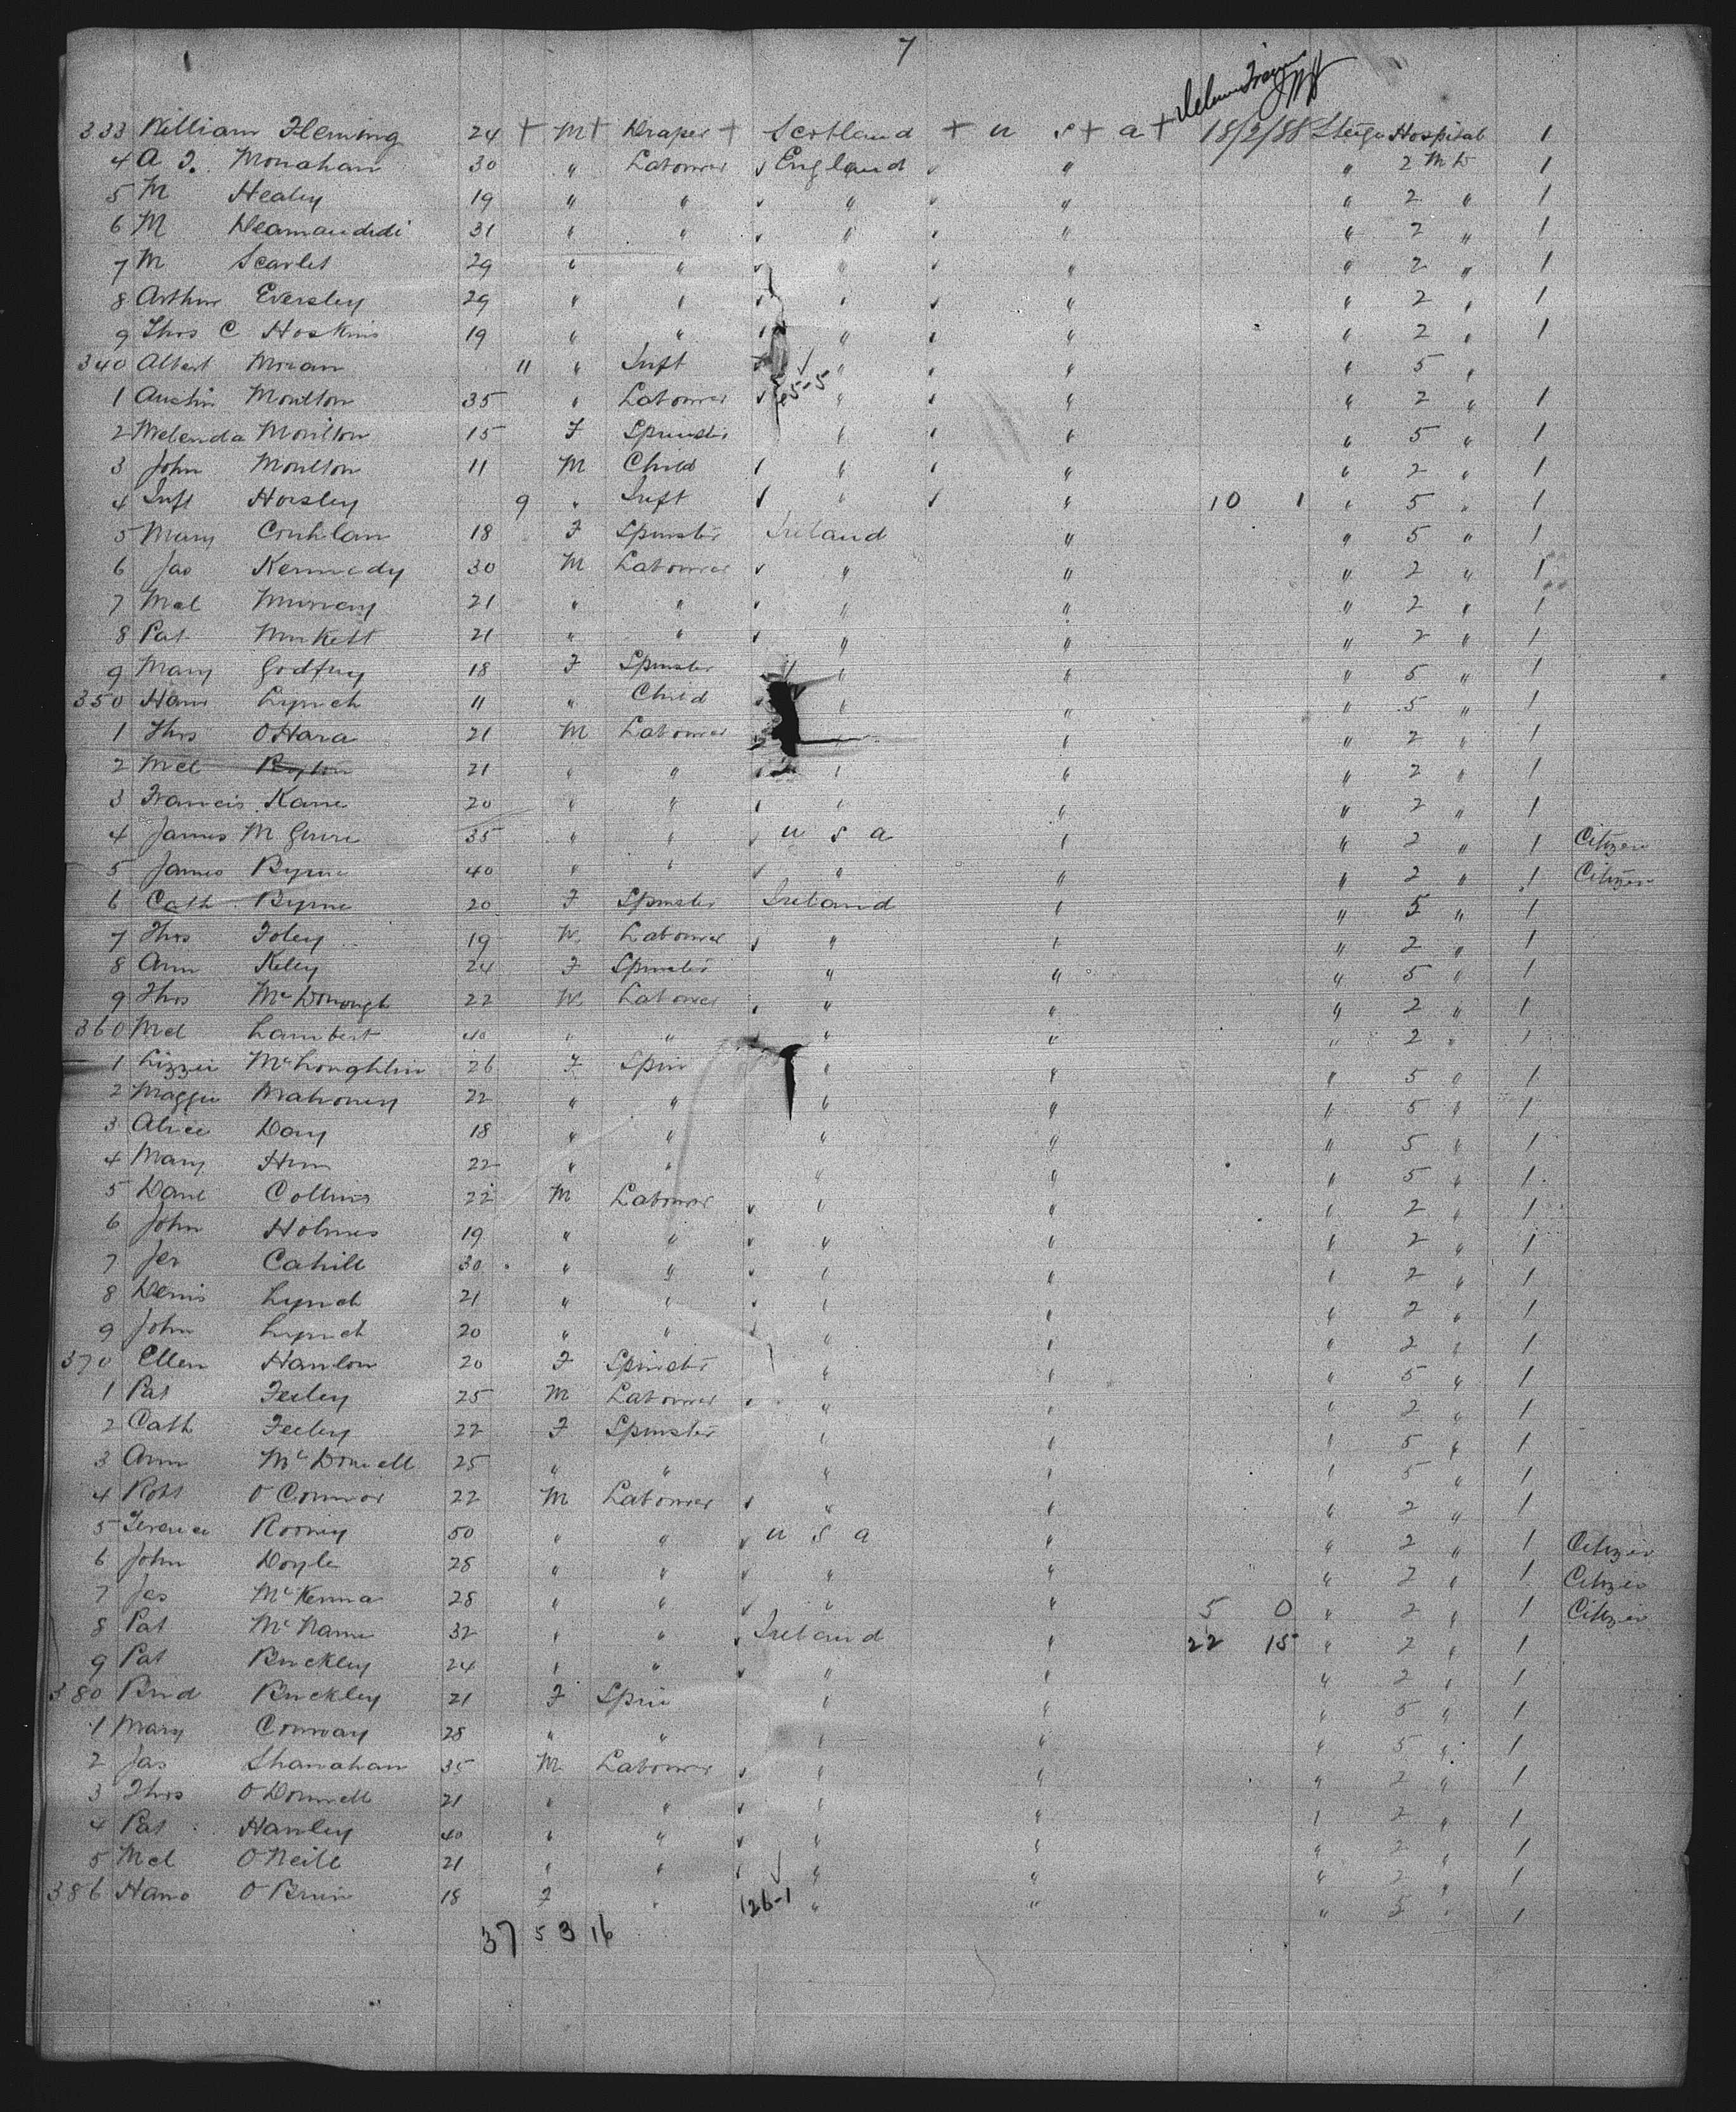 7
333 William Fleming 24 + M + Draper + Scotland + U S + A + 18/2/88 Hospital 1
4 A Monahan 30 " Labourer ✓ England ✓ " " 2 1
5 M Healey 19 " " ✓ " ✓ " " 2 " 1
6 M 31 " " ✓ " ✓ " " 2 " 1
7 M Scarlet 29 " " ✓ " ✓ " " 2 " 1
8 Arthur Eversley 29 " " ✓ " ✓ " " 2 " 1
9 Thos C Hoskins 19 " " " ✓ " " 2 " 1
340 Albert Moran 11 " Inft " ✓ " " 5 "
5-5
1 Austin Moulton 35 " Labourer ✓ " ✓ " " 2 " 1
2 Melenda Moulton 15 F Spinster " ✓ " " 5 " 1
3 John Moulton 11 M Child ✓ " ✓ " " 2 " 1
4 Inft Horsley 9 " Inft ✓ " ✓ " 10 1 " 5 " 1
5 Mary Conhlan 18 F Spinster Ireland " " 5 " 1
6 Jas Kennedy 30 M Labourer ✓ " " " 2 " 1
7 Mcl Murray 21 " " ✓ " " " 2 " 1
8 Pat 21 " " ✓ " " " 2 " 1
9 Mary Godfrey 18 F Spinster " " " 5 " 1
350 Hani Lynch 11 " Child " " " 5 " 1
1 Thos O Hara 21 M Labourer " " 2 " 1
2 Mcl 21 " " " " " 2 " 1
3 Francis Kane 20 " " ✓ " " " 2 " 1
4 James M Guire 35 " " ✓ U S A " " 2 " 1 Citizen
5 James Byrne 40 " " ✓ " " " 2 " 1 Citizen
6 Cath Byrne 20 F Spinster Ireland " " 5 " 1
7 Thos Foley 19 M Labourer ✓ " " " 2 " 1
8 Ann Keley 24 F Spinster " " " 5 " 1
9 Thos McDonough 22 M Labourer ✓ " " " 2 " 1
360 Mcl Lambert 40 " " " " " 2 " 1
1 Lizzie McLoughlin 26 F Spin " " " 5 " 1
2 Maggie Mahoney 22 " " " " " 5 " 1
3 Alice Day 18 " " " " " 5 " 1
4 Mary 22 " " " " " 5 " 1
5 Danl Collins 22 M Labourer ✓ " " " 2 " 1
6 John Holmes 19 " " ✓ " " " 2 " 1
7 Jer Cahill 30 " " ✓ " " " 2 " 1
8 Denis Lynch 21 " " ✓ " " " 2 " 1
9 John Lynch 20 " " ✓ " " " 2 " 1
370 Ellen Hanlon 20 F Spinster " " " 5 " 1
1 Pat Feeley 25 M Labourer ✓ " " " 2 " 1
2 Cath Feeley 22 F Spinster " " " 5 " 1
3 Ann McDonnell 25 " " " " " 5 " 1
4 Robt O Connor 22 M Labourer ✓ " " " 2 " 1
5 Terence Rooney 50 " " ✓ U S A " " 2 " 1 Citizen
6 John Doyle 28 " " ✓ " " " 2 " 1 Citizen
7 Jas McKenna 28 " " ✓ " " 5 0 " 2 " 1 Citizen
8 Pat McName 32 " " ✓ Ireland " 22 15 " 2 " 1
9 Pat Buckley 24 " " ✓ " " " 2 " 1
380 Brid Buckley 21 F Spin " " " 5 " 1
1 Mary Conway 28 " " " " " 5 " 1
2 Jas Shanahan 35 M Labourer ✓ " " " 2 " 1
3 Thos O Donnell 21 " " ✓ " " " 2 " 1
4 Pat Hanley 40 " " ✓ " " " 2 " 1
5 Mcl O Neill 21 " " ✓ " " " 2 " 1
386 Hano O Brien 18 F " 126-1 " " " 5 " 1
37 5 3 16